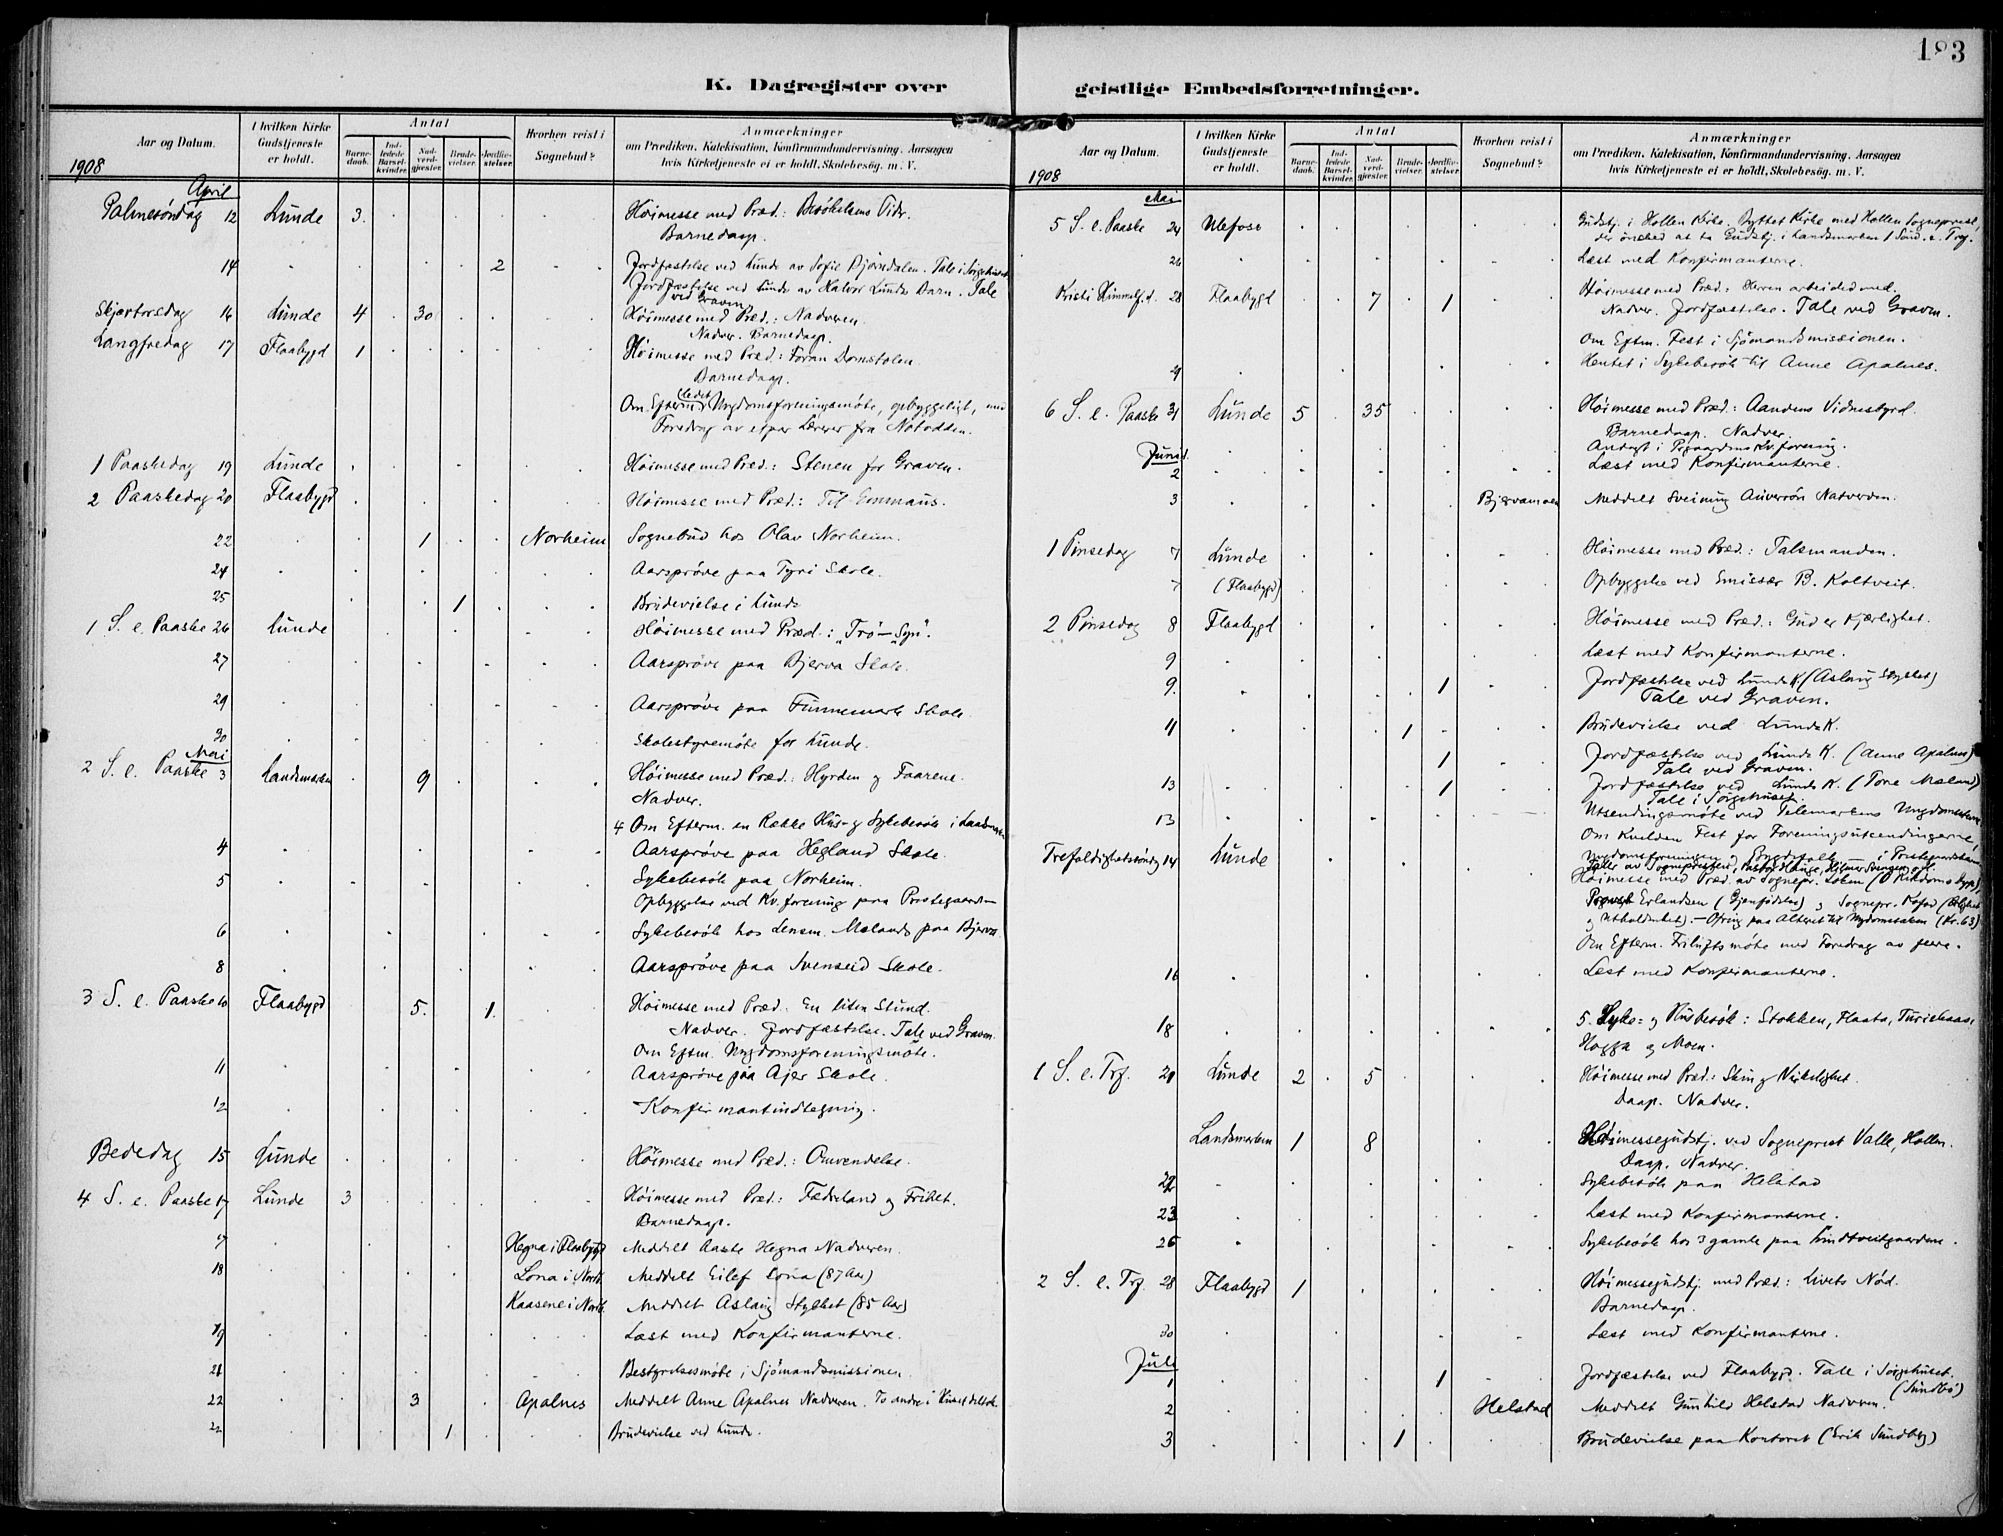 183
K. Dagregister over geistlige Embedsforretninger.
Aar og Datum.
I hvilken Kirke Gudstjeneste er holdt.
Antal
Barnedaab.
Indledede Barselkvinder.
Nadverdgjester.
Brudevielser.
Jordfæstelser.
Hvorhen reist i Sognebud?
Anmærkninger
om Prædiken, Katekisation, Konfirmandundervisning, Aarsagen
hvis Kirketjeneste ei er holdt, Skolebesøg. m. V.
1908
April
Palmesöndag 12 Lunde 3. Höimesse med Præd.: Besökelsens Tider.
Barnedaap.
14 2 Jordfæstelse ved Lunde av Sofie Bjørndalen. Tale i Sørgehuset
Jordfæstelse ved Lunde av Halvor Lundes Barn. Tale
ved Graven
Skjærtorsdag 16 Lunde 4 30 Höimesse med Præd.: Nadveren.
Nadver. Barnedaap.
Langfredag 17 Flaabygd 1 Höimesse med Præd.: Foran Domstolen.
Barnedaap.
Om Efterm. ledet Ungdomsforeningsmöte, opbyggeligt, med
Foredrag av etpar Lærere fra Notodden.
1 Paaskedag 19 Lunde Höimesse med Præd.: Stenen for Graven.
2 Paaskedag 20 Flaabygd Höimesse med Præd.: Til Emmaus.
22 1 Norheim Sognebud hos Olav Norheim.
24 Aarspröve paa Tyri Skole.
25 1 Brudevielse i Lunde
1 S. e. Paaske 26 Lunde Höimesse med Præd.: „Tro"—„Syn".
27 Aarspröve paa Bjerva Skole.
29 Aarspröve paa Finnemark Skole.
30 Skolestyremöte for Lunde.
Mai
2 S. e. Paaske 3 Landsmarken 9 Höimesse med Præd.: Hyrden og Faarene.
Nadver.
4 Om Efterm. en Række Hus- og Sykebesök i Landsmarken
4 Aarspröve paa Hegland Skole.
5 Sykebesök paa Norheim.
Opbyggelse ved Kv.forening paa Prestegaarden
6 Sykebesök hos Lensm. Mæland paa Bjerva
8 Aarspröve paa Svenseid Skole.
3 S. e. Paaske 10 Flaabygd 5. 1. Höimesse med Præd.: En liten Stund.
Nadver. Jordfæstelse. Tale ved Graven.
Om Eftm. Ungdomsforeningsmöte.
11 Aarspröve paa Ajer Skole.
12 Konfirmantindtegning.
Bededag 15 Lunde Höimesse med Præd.: Omvendelse.
4 S. e. Paaske 17 Lunde 3 Höimesse med Præd.: Fædreland og Frihet.
Barnedaap.
17 Hegna i Flaabygd Meddelt Aaste Hegna Nadveren.
18 Lona i Nordb. Meddelt Eilef Lona (87 Aar)
Kaasene i Nordb. Meddelt Aslaug Stykket (85 Aar)
19 Læst med Konfirmanterne.
21 Bestyrelsesmöte i Sjömandsmissionen.
22 3 Apalnes Meddelt Anne Apalnes Nadveren. To andre i Huset deltok.
22 1 Brudevielse ved Lunde.
Aar og Datum.
I hvilken Kirke Gudstjeneste er holdt.
Antal
Barnedaab.
Indledede Barselkvinder.
Nadverdgjester.
Brudevielser.
Jordfæstelser.
Hvorhen reist i Sognebud?
Anmærkninger
om Prædiken, Katekisation, Konfirmandundervisning, Aarsagen
hvis Kirketjeneste ei er holdt, Skolebesøg. m. V.
1908
Mai
5 S. e. Paaske 24 Ulefoss Gudstj. i Hollen Kirke. Byttet Kirke med Hollen Sogneprest,
der önsked at ta Gudstj. i Landsmarken 1 Sönd. e. Tref.
26 Læst med Konfirmanterne.
Kristi Himmelf.d. 28 Flaabygd 7 1 Höimesse med Præd.: Herren arbeided med.
Nadver. Jordfæstelse. Tale ved Graven.
Om Eftm. Fest i Sjömandsmissionen.
Hentet i Sykebesök til Anne Apalnes.
6 S. e. Paaske 31 Lunde 5 35 Höimesse med Præd.: Aandens Vidnesbyrd.
Barnedaap. Nadver.
Andagt i Kv.forening.
Juni
2 Læst med Konfirmanterne.
3 Bjervamoen Meddelt Sveinung Nadverden.
1 Pinsedag 7 Lunde Höimesse med Præd.: Talsmanden.
7 (Flaabygd) Opbyggelse ved Emissær B. Koltveit.
2 Pinsedag 8 Flaabygd Höimesse med Præd.: Gud er Kjærlighet.
9 Læst med Konfirmanterne.
9. 1 Jordfæstelse ved Lunde K. (Aslaug Stykket)
Tale ved Graven.
11 1 Brudevielse ved Lunde K.
1 Jordfæstelse ved Lunde K. (Anne Apalnes)
Tale ved Graven.
13 1 Jordfæstelse ved Lunde K. (Tone Mæland)
Tale i Sørgehuset.
13 Utsendingsmöte ved Telemarkens Ungdomsstevne
Om Kvelden Fest for Foreningsutsendingerne,
Ungdomsforeningen og Bygdefolk i Prestegaardshaven
Trefoldighetsöndag 14 Lunde Höimesse med Præd. av Sognepr. Löken
Provst Erlandsen (Gjenfödelse) og Sognepr.
og Utholdenhet). — Ofring paa Alteret til Ungdomssaken (Kr. 63)
Om Efterm. Friluftsmöte med Foredrag av flere.
16 Læst med Konfirmanterne.
18 5. Syke- og Husbesök: Stokken, Flaata, Turishaas,
Hogga og Moen.
1 S. e. Tref. 21 Lunde 2 5 Höimesse med Præd.: Skin og Virkelighet.
Daap. Nadver.
Landsmarken 1 8 Höimessegudstj. ved Sogneprest Valle, Hollen.
Daap. Nadver.
22 Sykebesök paa Helstad
23 Læst med Konfirmanterne.
26 Sykebesök hos 3 gamle paa Lindtveitgaardene.
2 S. e. Tref. 28 Flaabygd 1 Höimessegudstj. med Præd.: Livets Nöd.
Barnedaap.
30 Læst med Konfirmanterne.
Juli
1 1 Jordfæstelse ved Flaabygd. Tale i Sørgehuset.
(Sundbö)
2 Helstad Meddelt Gunhild Helstad Nadveren.
3 1 Brudevielse paa Kontoret (Erik Sundberg)